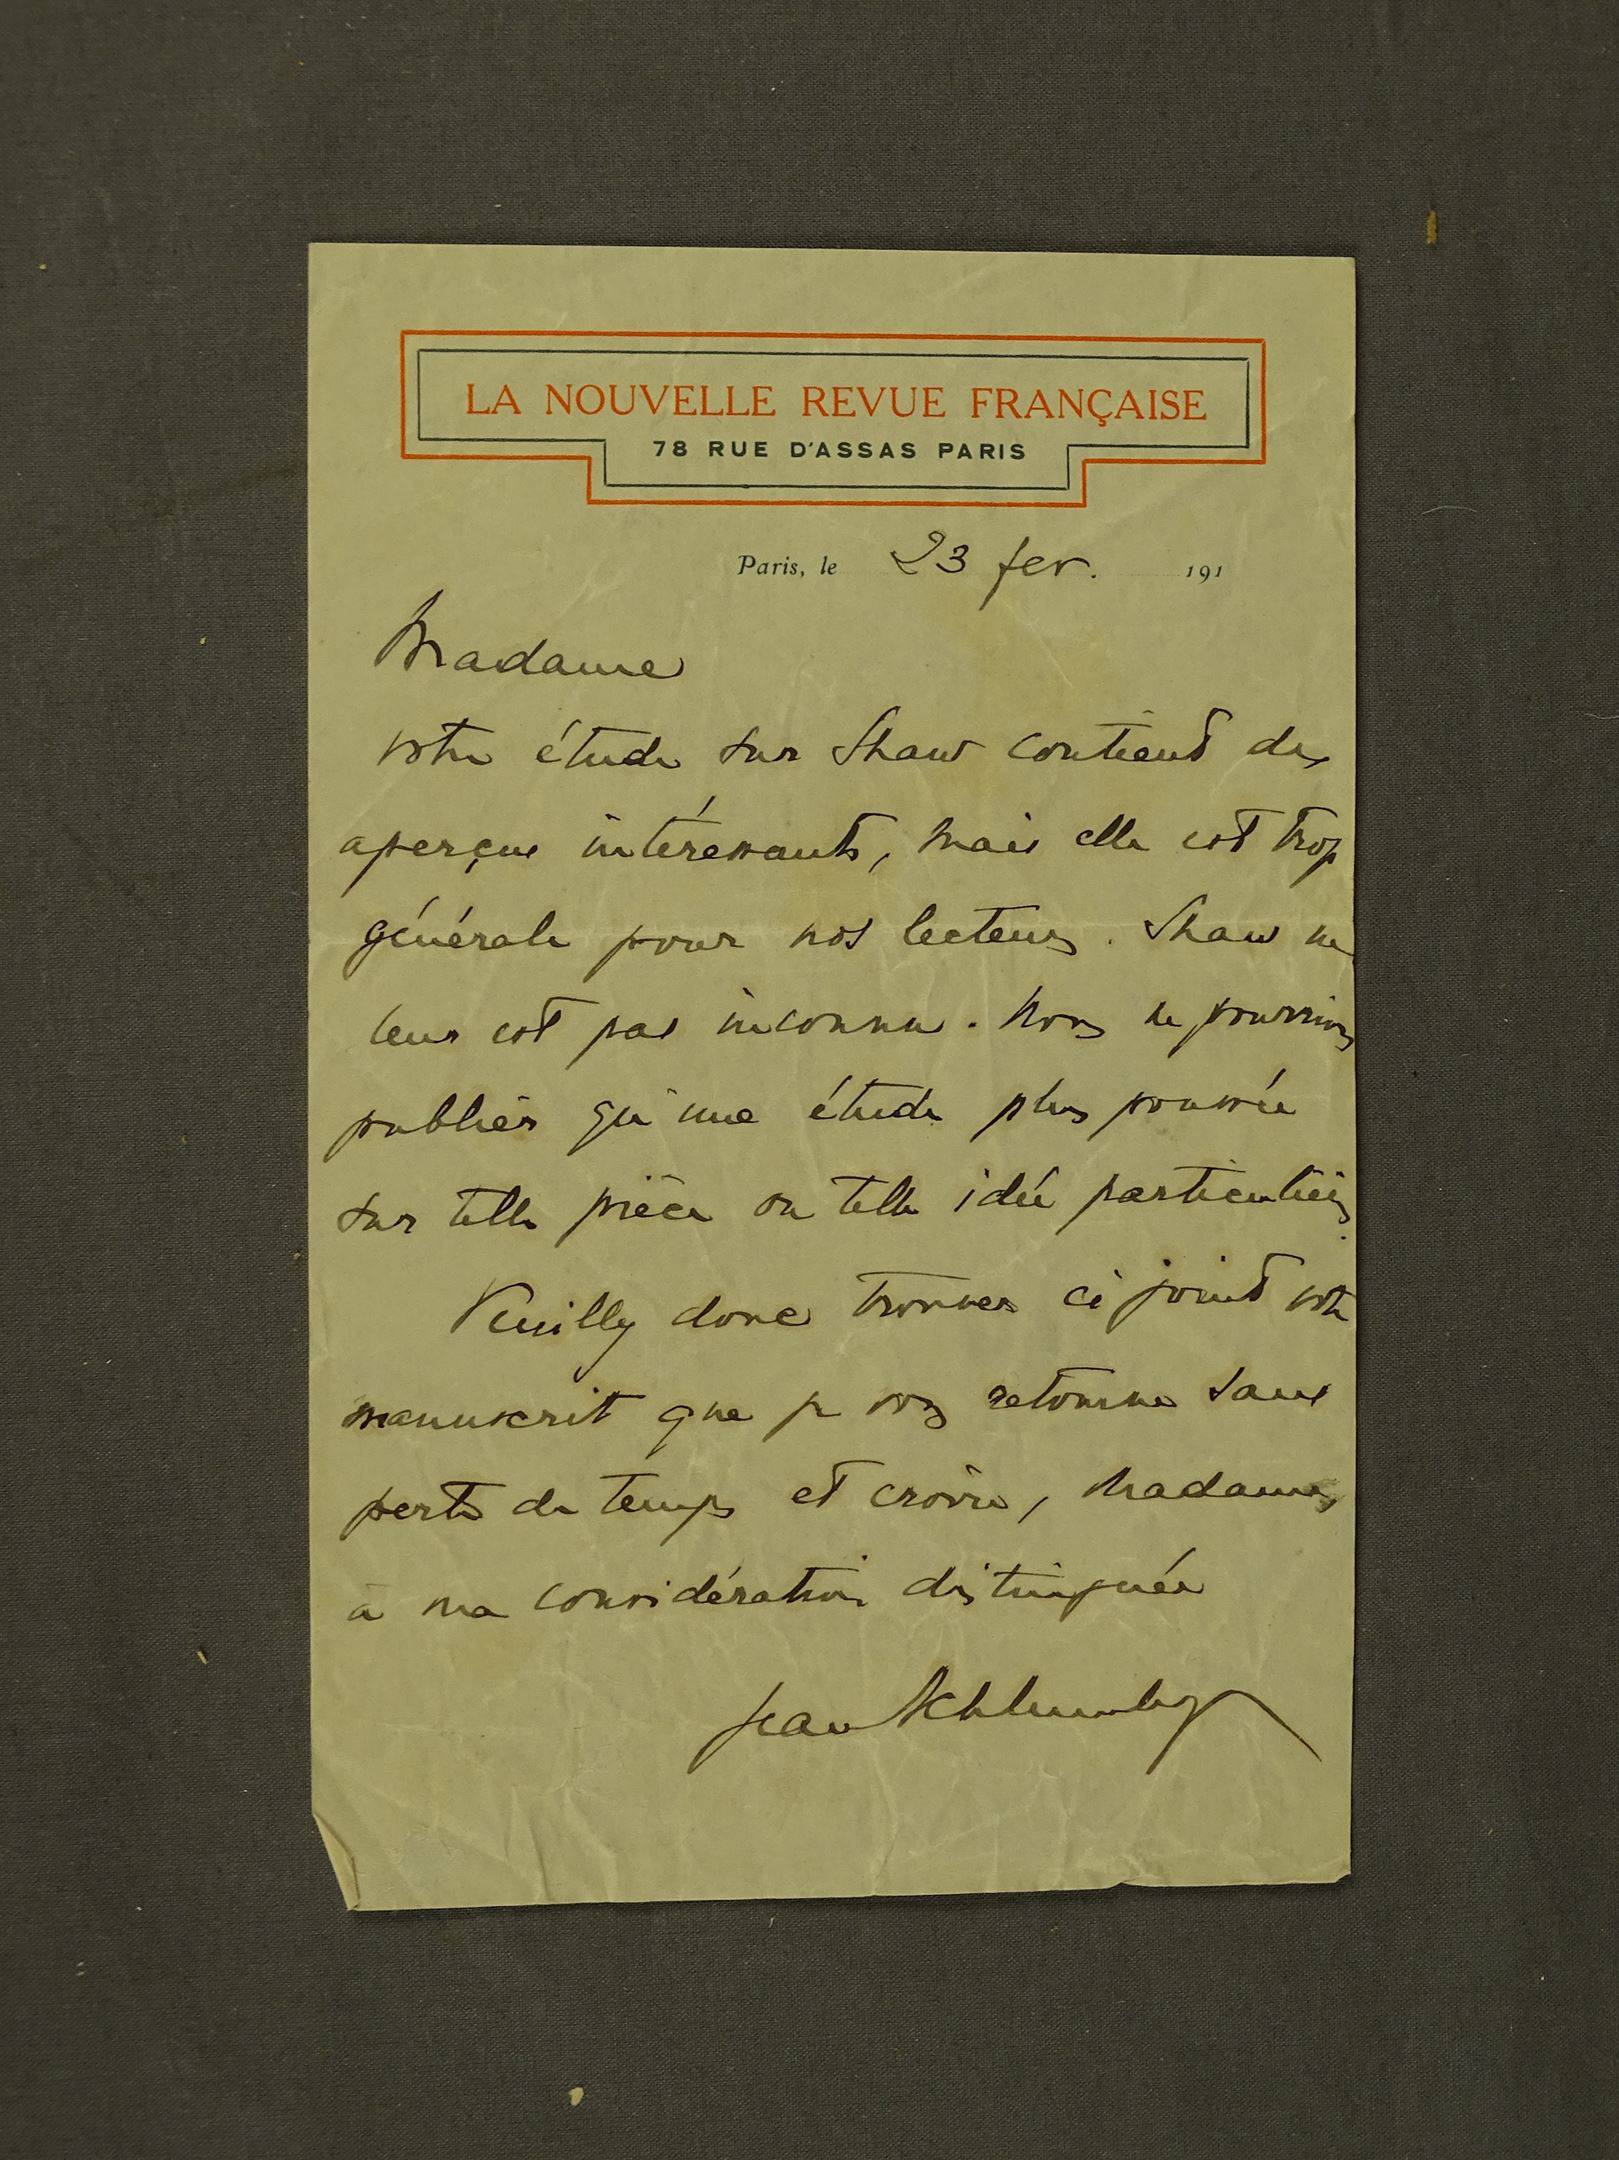 LA NOUVELLE REVUE FRANÇAISE
78 RUE D'ASSAS PARIS
Paris, le 23 fev. 191
Madame
votre étude sur Shaw contient des
aperçus intéressants, mais elle est trop
générale pour nos lecteurs. Shaw ne
leur est pas inconnu. Nous ne pourrions
publier qu'une étude plus poussée
sur telle pièce ou telle idée particulière.
Veuillez donc trouver ci joint votre
manuscrit que je vous retourne sans
perte de temps et croire, Madame,
à ma considération distinguée
Jean Schlumberger